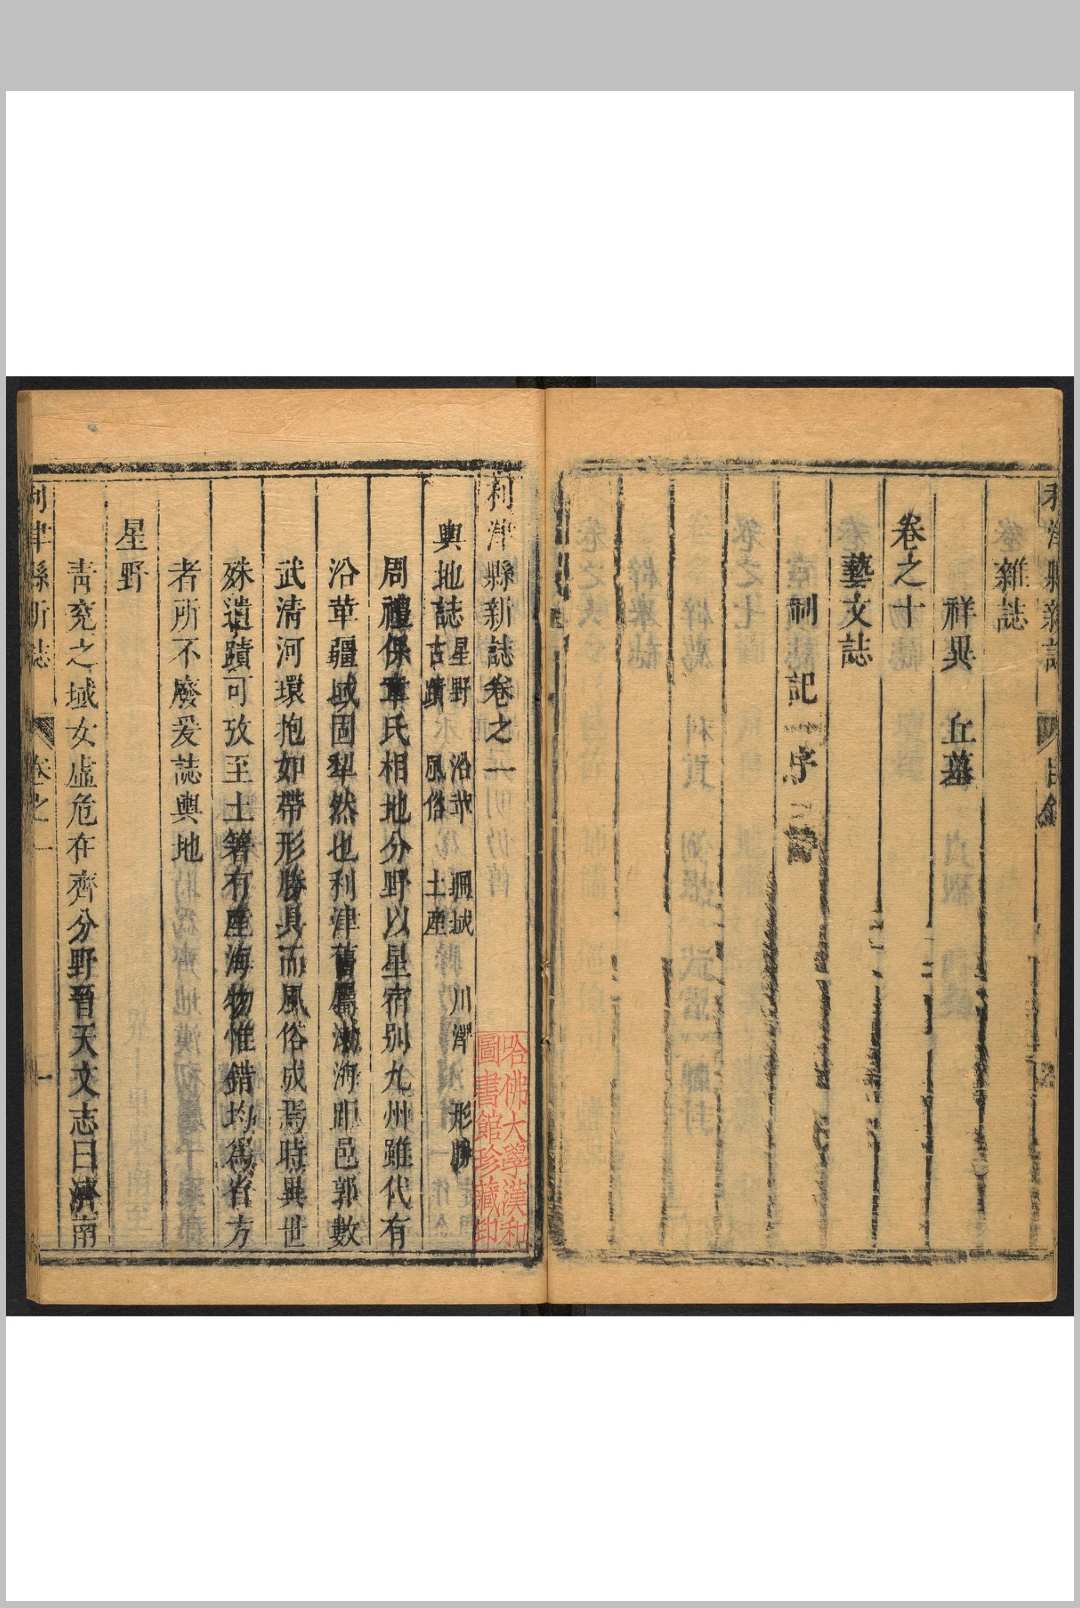 雜誌
祥異 丘墓
卷之十
藝文誌
制 記 序 詩
利津縣新誌卷之一
輿地誌 星野 沿革 疆域 川澤 形勝
古蹟 風俗 土產
周禮保章氏相地分野以星宿别九州雖代有
沿革疆域固犁然也利津舊屬渤海距邑郭數
武清河環抱如帶形勝具而風俗成焉時異世
殊遺蹟可攷至土著有產海物惟錯均爲省方
者所不廢爰誌輿地
星野
青兖之域女虛危在齊分野晉天文志曰濟南
利津縣新誌 卷之一 一
哈佛大學漢和
圖書館珍藏印